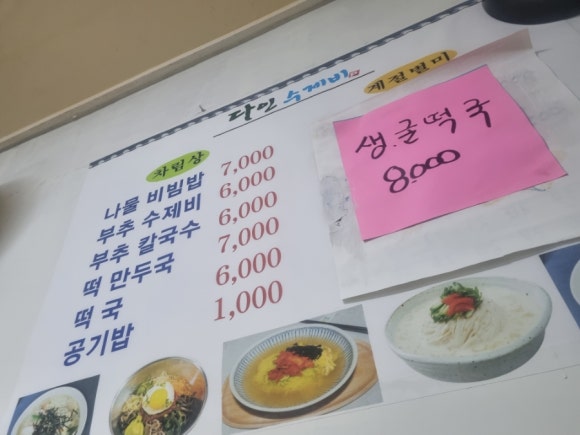 다인 수제비
차림상
나물 비빔밥 7,000
부추 수제비 6,000
부추 칼국수 6,000
떡 만두국 7,000
떡 국 6,000
공기밥 1,000
계절별미
생.굴떡국
8.000